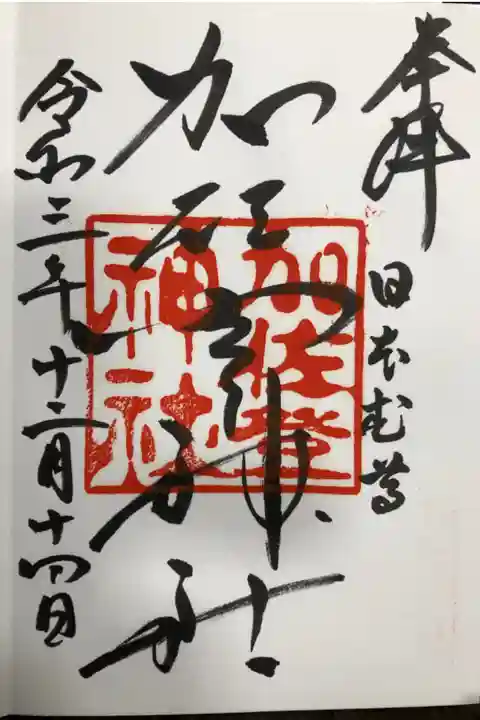 奉拝
日本武尊
加佐登神社
加佐登
神社
令和三年十二月十四日